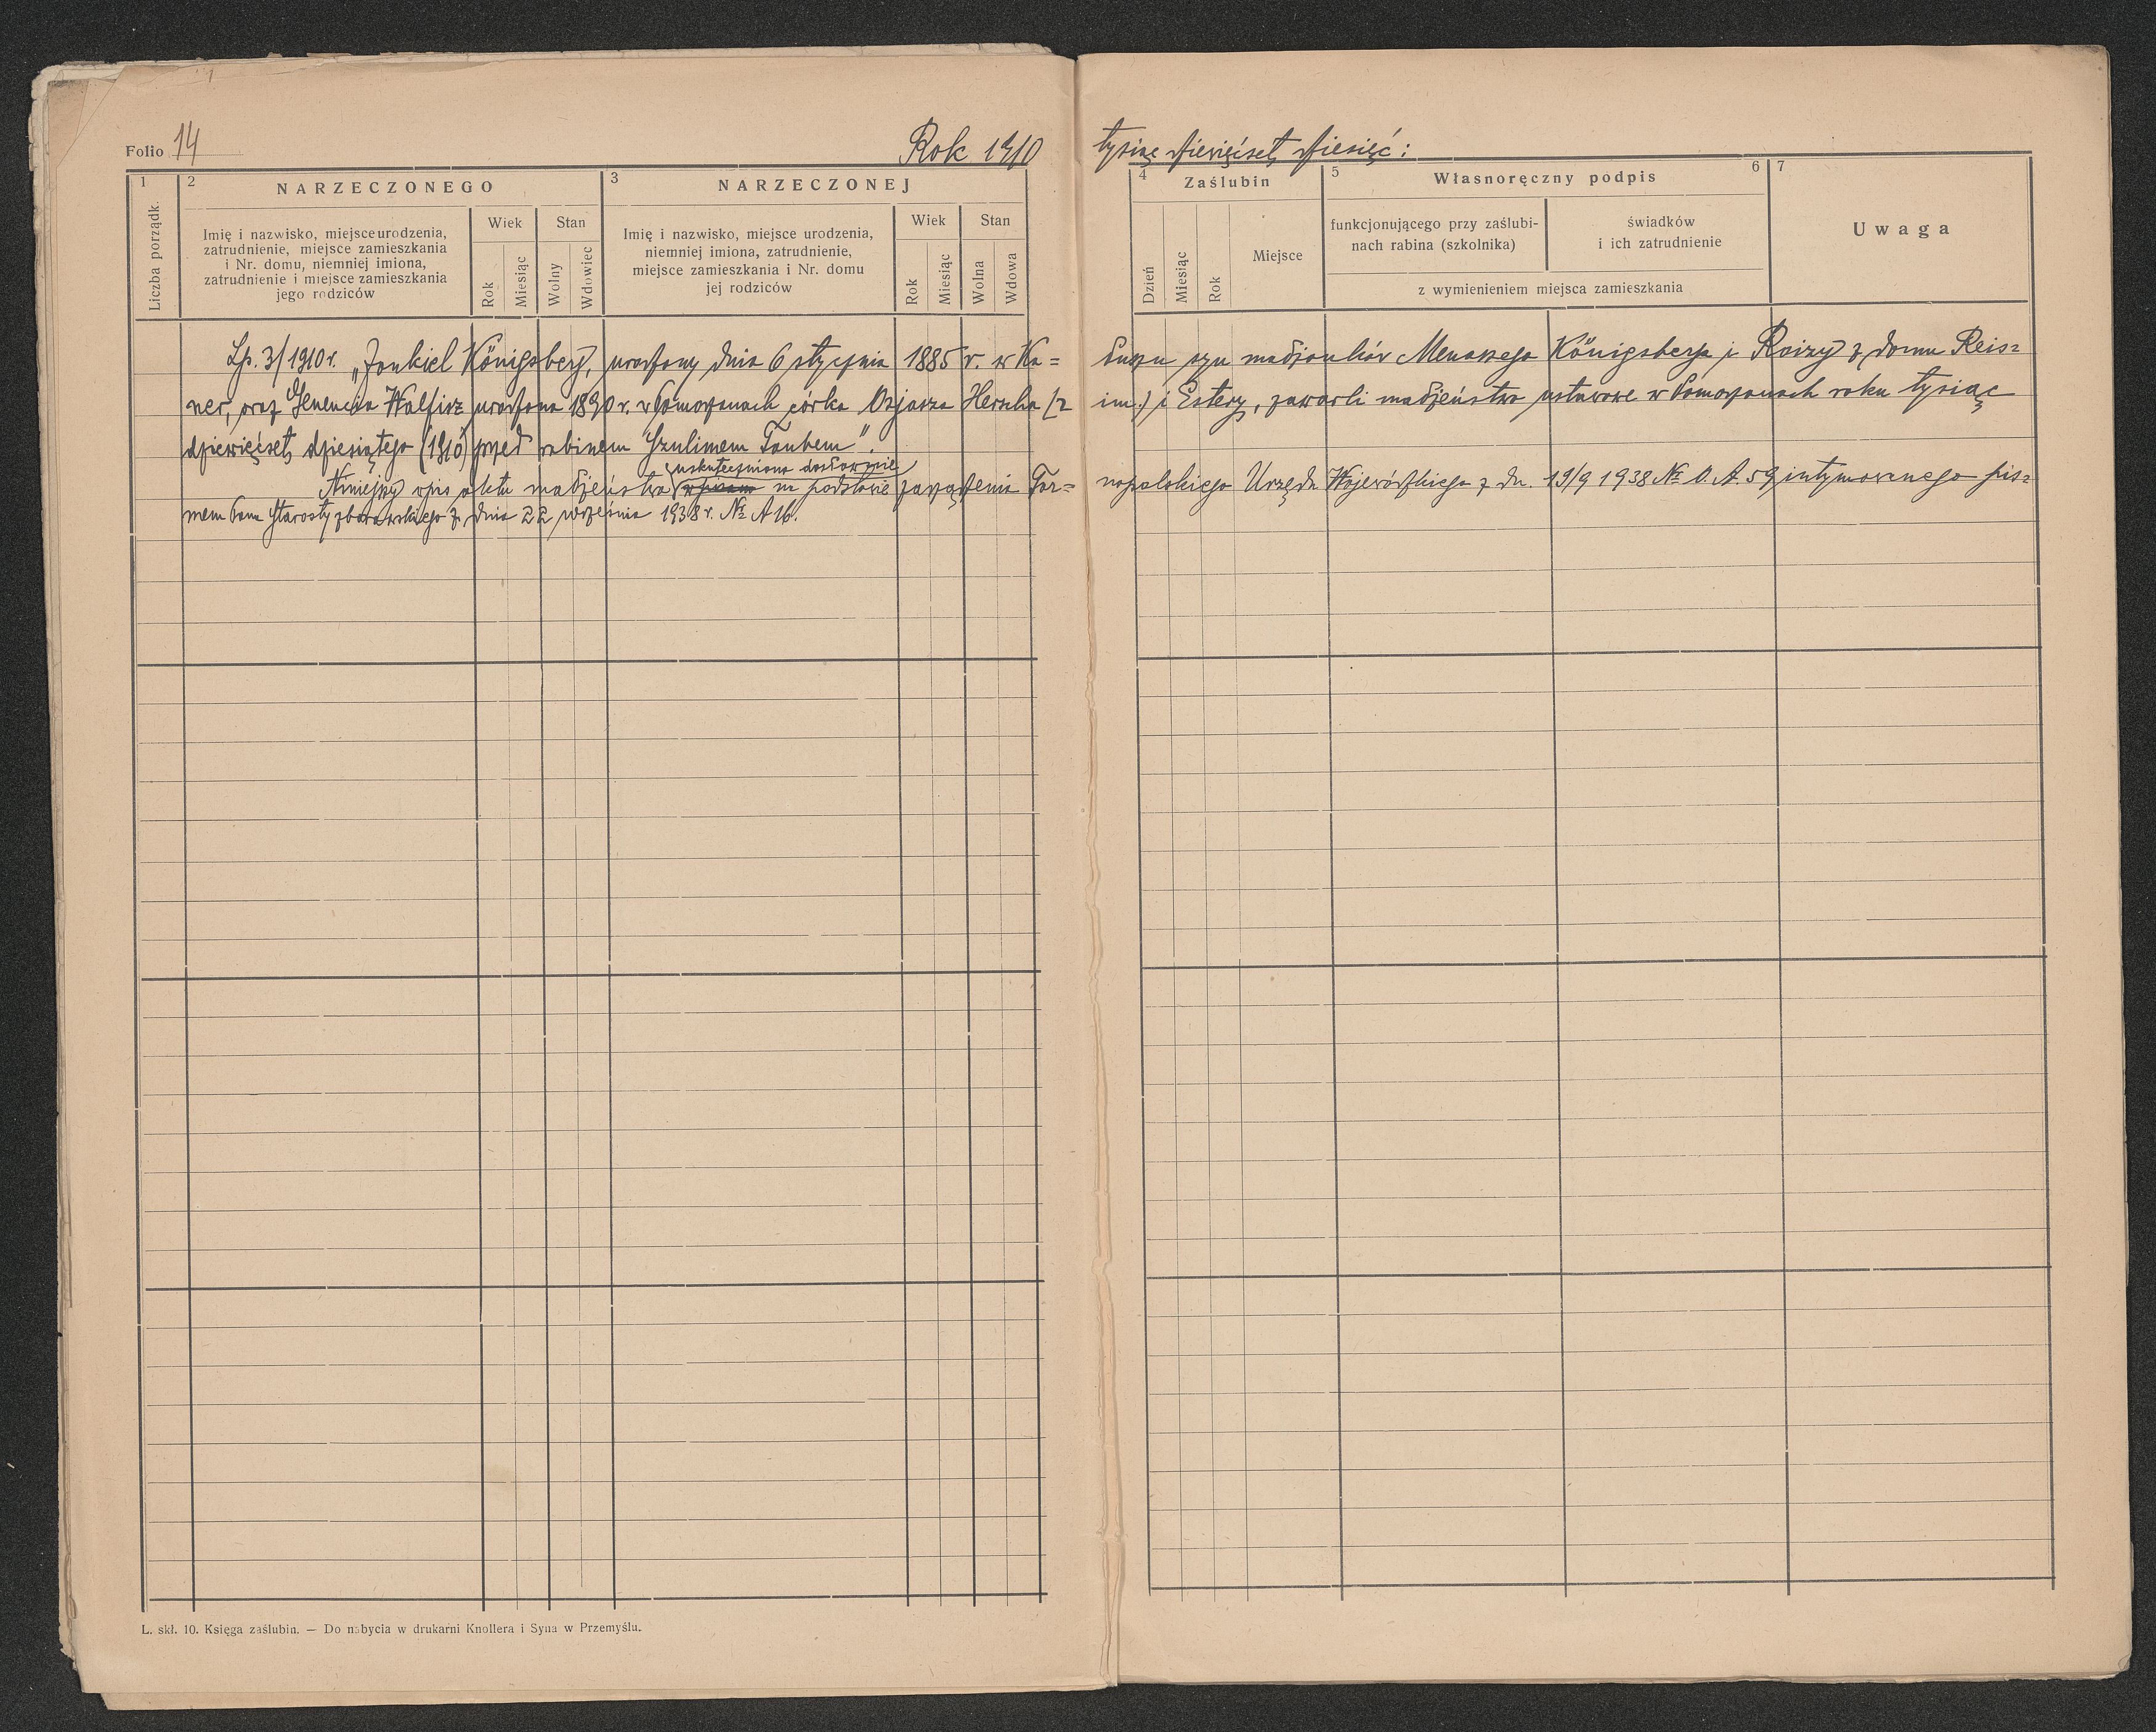 Folio 14
Rok 1910 tysiąc dziewięćset dziesięć:
1
Liczba porządk.
2
NARZECZONEGO
Imię i nazwisko, miejsce urodzenia,
zatrudnienie, miejsce zamieszkania
i Nr. domu, niemniej imiona,
zatrudnienie i miejsce zamieszkania
jego rodziców
Wiek
Rok
Miesiąc
Stan
Wolny
Wdowiec
3
NARZECZONEJ
Imię i nazwisko, miejsce urodzenia,
niemniej imiona, zatrudnienie,
miejsce zamieszkania i Nr. domu
jej rodziców
Wiek
Rok
Miesiąc
Stan
Wolna
Wdowa
4
Zaślubin
Dzień
Miesiąc
Rok
Miejsce
5
Własnoręczny podpis
6
funkcjonującego przy zaślubi-
nach rabina (szkolnika)
świadków
i ich zatrudnienie
z wymienieniem miejsca zamieszkania
7
Uwaga
Lp. 3/1910 r. „Jankiel Königsberg, urodzony dnia 6 stycznia 1885 r. w Ka= łuszu syn małżonków Menaszego Königsberga i Roizy z domu Reis=
ner, oraz Genencia Walfisz urodzona 1890 r. w Pomorzanach córka Ozjasza Herscha (2 im.) i Estery, zawarli małżeństwo ustawowe w Pomorzanach roku tysiąc
dziewięćset dziesiątego (1910) przed rabinem Szulimem Taubem".
uskuteczniono dosłownie
Niniejszy wpis aktu małżeństwa wpisano na podstawie zarządzenia Tar= nopolskiego Urzędu Wojewódzkiego z dn. 19/9 1938 № O. A. 59 intymowanego pis=
mem Pana Starosty zborowskiego z dnia 22 września 1938 r. № A 16.
L. skł. 10. Księga zaślubin. — Do nabycia w drukarni Knollera i Syna w Przemyślu.